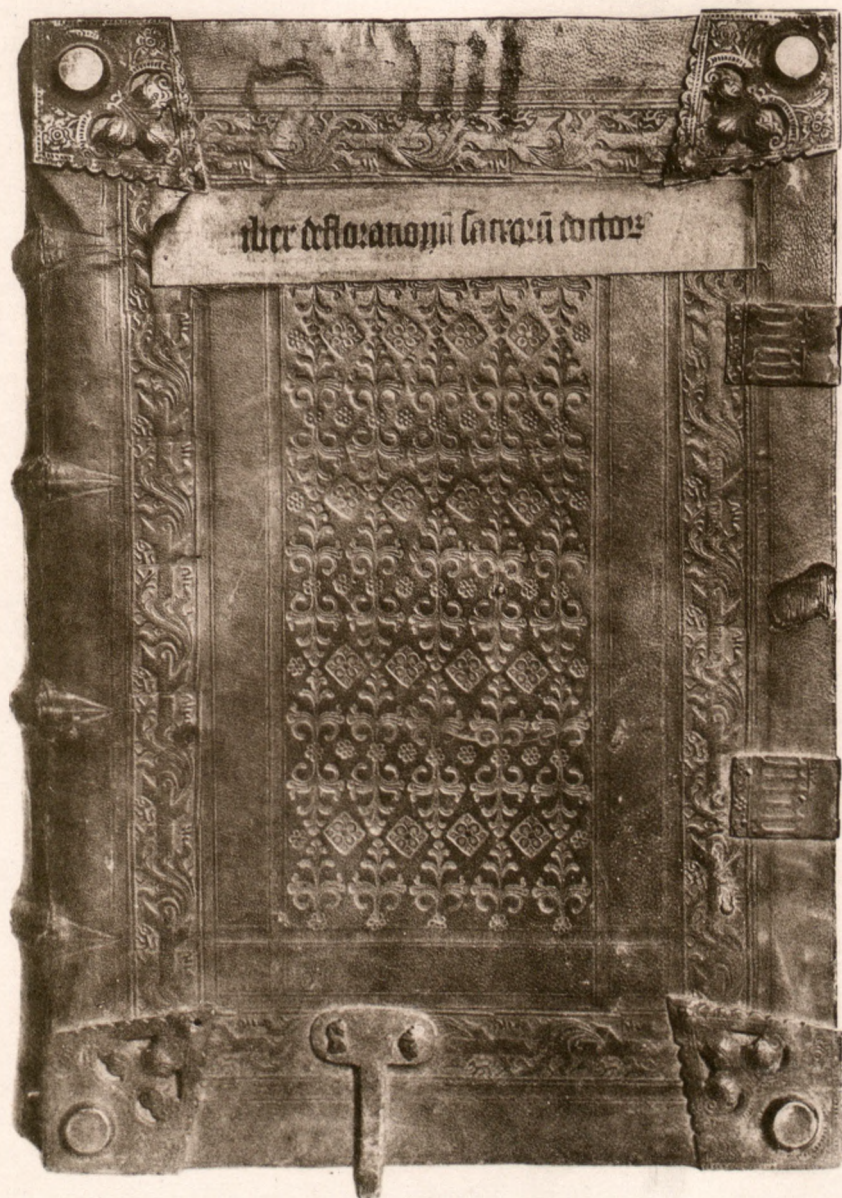 iber deflorationū sacrorū doctoꝝ